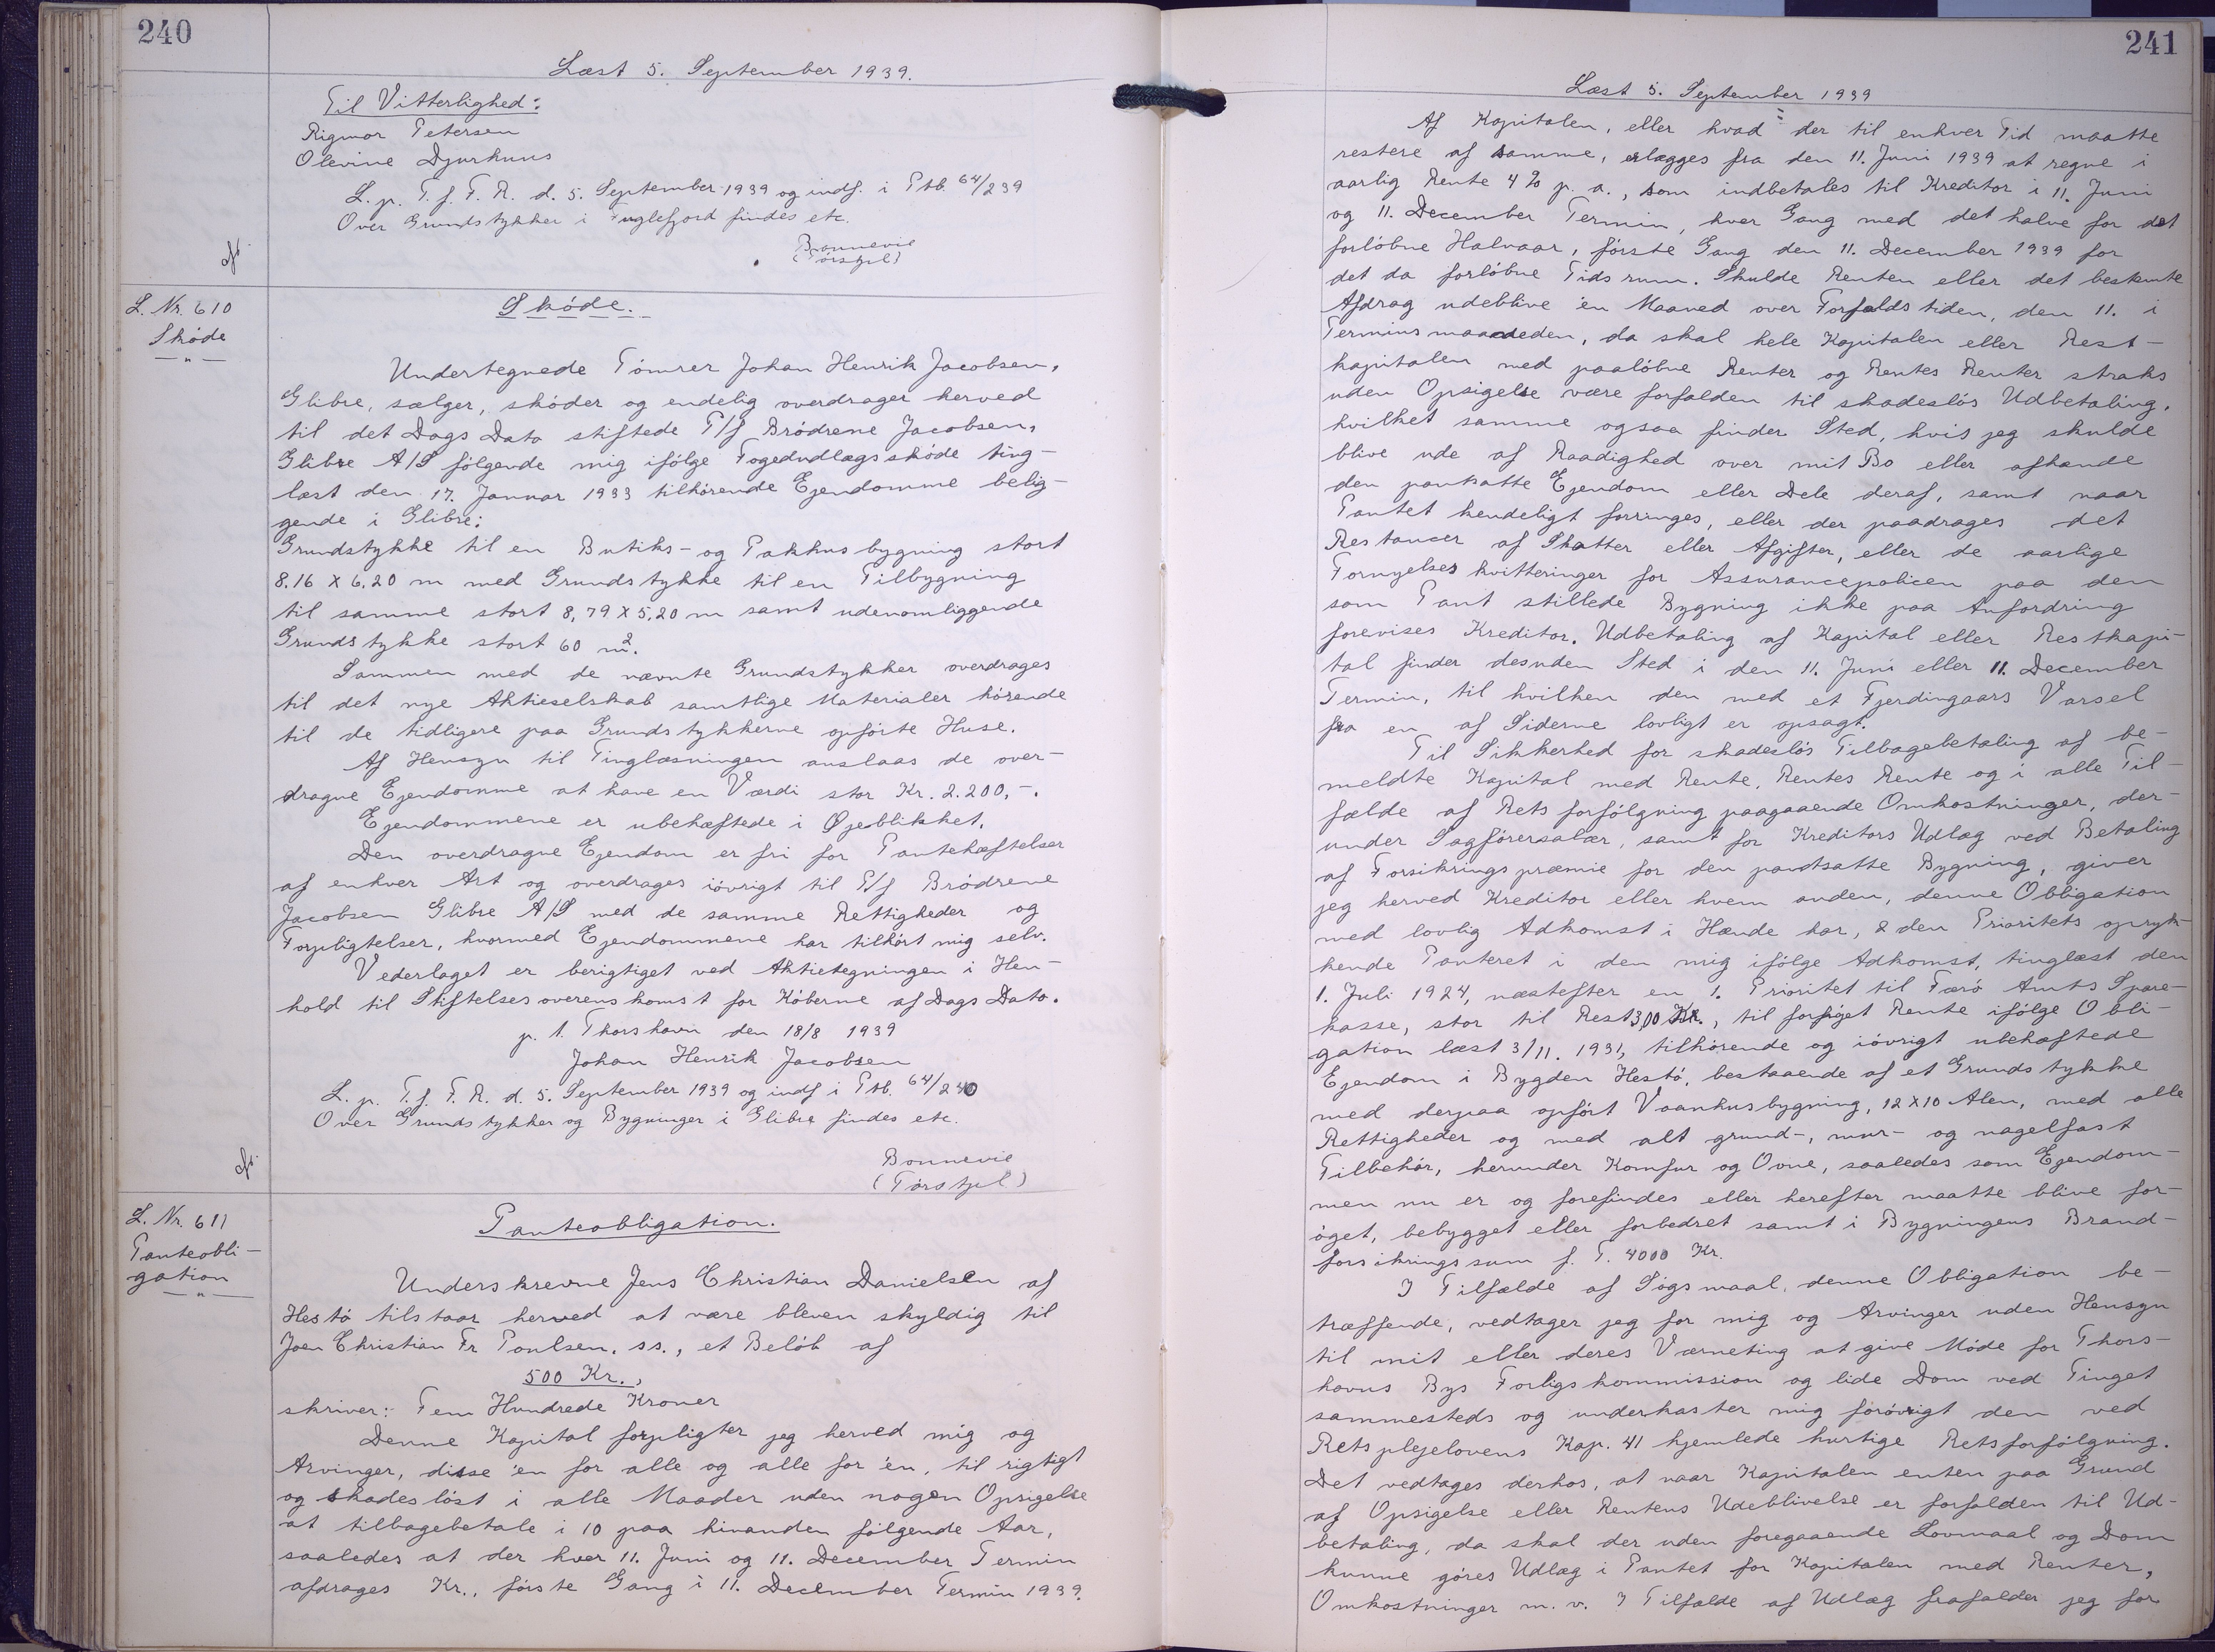 240
Læst 5. September 1939.
Til Vitterlighed:
Rigmor Petersen
Olevine Djurhuus
L. p. T. f. F. R. d. 5. September 1939 og indf. i Ptb. 64/239
Over Grundstykker i Fuglefjord findes etc.
Bonnevie
(Tórstjel)
L. Nr. 610
Skóde
— " —
Skóde.
Undertegnede Tómrer Johan Henrik Jacobsen,
Glibre, sælger, skóder og endelig overdrager herved
til det Dags Dato stiftede P/f Bródrene Jacobsen,
Glibre A/S fólgende mig ifólge Fogedudlægsskóde ting-
læst den 17. Januar 1933 tilhórende Ejendomme belig-
gende i Glibre:
Grundstykke til en Butiks- og Pakhusbygning stort
8.16 x 6.20 m med Grundstykke til en Tilbygning
til samme stort 8,79 x 5,20 m samt udenomliggende
Grundstykke stort 60 m².
Sammen med de nævnte Grundstykker overdrages
til det nye Aktieselskab samtlige Materialer hórende
til de tidligere paa Grundstykkerne opfórte Huse.
Af Hensyn til Tinglæsningen anslaas de over-
dragne Ejendomme at have en Værdi stor Kr. 2.200,-.
Ejendommene er ubehæftede i Øjeblikket.
Den overdragne Ejendom er fri for Pantehæftelser
af enhver Art og overdrages ióvrigt til P/f Bródrene
Jacobsen Glibre A/S med de samme Rettigheder og
Forpligtelser, hvormed Ejendommene har tilhórt mig selv.
Vederlaget er berigtiget ved Aktietegningen i Hen-
hold til Stiftelsesoverenskomst for Kóberne af Dags Dato.
p. t. Thorshavn den 18/8 1939
Johan Henrik Jacobsen
L. p. T. f. F. R. d. 5. September 1939 og indf i Ptb. 64/240
Over Grundstykker og Bygninger i Glibre findes etc.
Bonnevie
(Tórstjel)
L. Nr. 611
Panteobli-
gation
— " —
Panteobligation.
Underskrevne Jens Christian Danielsen af
Hestó tilstaar herved at være bleven skyldig til
Joen Christian Fr Poulsen, ss., et Belób af
500 Kr.,
skriver: Fem Hundrede Kroner
Denne Kapital forpligter jeg herved mig og
Arvinger, disse 'en for alle og alle for 'en, til rigtigt
og skadeslóst i alle Maader uden nogen Opsigelse
at tilbagebetale i 10 paa hinanden fólgende Aar,
saaledes at der hver 11. Juni og 11. December Termin
afdrages Kr., fórste Gang i 11. December Termin 1939.
241
Læst 5. September 1939
Af Kapitalen, eller hvad der til enhver Tid maatte
restere af samme, erlægges fra den 11. Juni 1939 at regne i
aarlig Rente 4% p. a., som indbetales til Kreditor i 11. Juni
og 11. December Termin, hver Gang med det halve for det
forlóbne Halvaar, fórste Gang den 11. December 1939 for
det da forlóbne Tidsrum. Skulde Renten eller det bestemte
Afdrag udeblive 'en Maaned over Forfaldstiden, den 11. i
Terminsmaaneden, da skal hele Kapitalen eller Rest-
kapitalen med paalóbne Renter og Rentes Renter straks
uden Opsigelse være forfalden til skadeslós Udbetaling,
hvilket samme ogsaa finder Sted, hvis jeg skulde
blive ude af Raadighed over mit Bo eller afhænde
den pantsatte Ejendom eller Dele deraf, samt naar
Pantet kendeligt forringes, eller der paadrages det
Restancer af Skatter eller Afgifter, eller de aarlige
Fornyelses kvitteringer for Assurancepolicen paa den
som Pant stillede Bygning ikke paa Anfordring
forevises Kreditor. Udbetaling af Kapital eller Restkapi-
tal finder desuden Sted i den 11. Juni eller 11. December
Termin, til hvilken den med et Fjerdingaars Varsel
fra en af Siderne lovligt er opsagt.
Til Sikkerhed for skadeslós Tilbagebetaling af be-
meldte Kapital med Rente, Rentes Rente og i alle Til-
fælde af Retsforfólgning paagaaende Omkostninger, der-
under Sagfórersalær, samt for Kreditors Udlæg ved Betaling
af Forsikringspræmie for den pantsatte Bygning, giver
jeg herved Kreditor eller hvem anden, denne Obligation
med lovlig Adkomst i Hænde har, 2den Prioritets opryk-
kende Panteret i den mig ifólge Adkomst, tinglæst den
1. Juli 1924, næstefter en 1. Prioritet til Færó Amts Spare-
kasse, stor til Rest 300 Kr., til forhøjet Rente ifólge Obli-
gation læst 3/11. 1931, tilhórende og ióvrigt ubehæftede
Ejendom i Bygden Hestó, bestaaende af et Grundstykke
med derpaa opfórt Vaanhusbygning, 12 x 10 Alen, med alle
Rettigheder og med alt grund-, mur- og nagelfast
Tilbehór, herunder Komfur og Ovne, saaledes som Ejendom-
men nu er og forefindes eller herefter maatte blive for-
óget, bebygget eller forbedret samt i Bygningens Brand-
forsikringssum f. T. 4000 Kr.
I Tilfælde af Sógsmaal, denne Obligation be-
træffende, vedtager jeg for mig og Arvinger uden Hensyn
til mit eller deres Værneting at give Móde for Thors-
havns Bys Forligskommission og lide Dom ved Tinget
sammesteds og underkaster mig fórøvrigt den ved
Retsplejelovens Kap. 41 hjemlede hurtige Retsforfólgning.
Det vedtages derhos, at naar Kapitalen enten paa Grund
af Opsigelse eller Rentens Udeblivelse er forfalden til Ud-
betaling, da skal der uden foregaaende Lovmaal og Dom
kunne góres Udlæg i Pantet for Kapitalen med Renter,
Omkostninger m. v. I Tilfælde af Udlæg frafalder jeg for